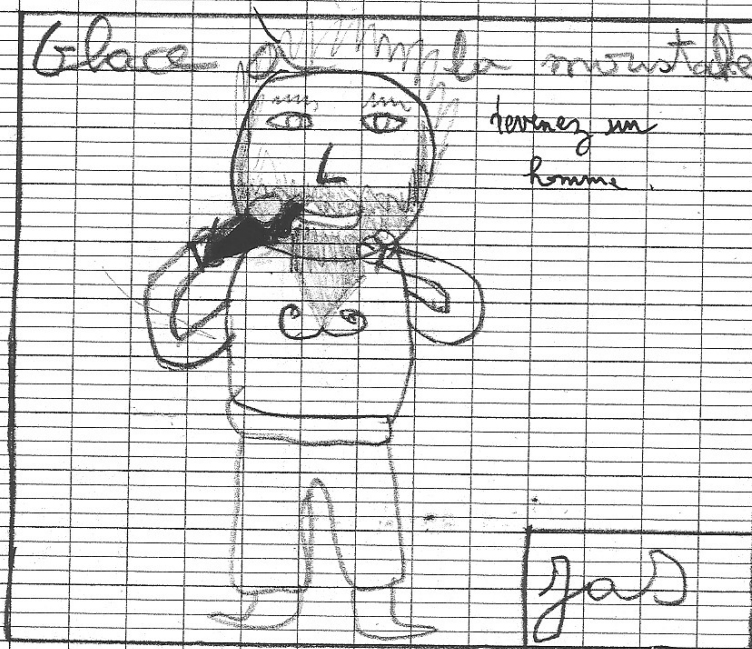 Glace à la moustache
devenez un
homme.